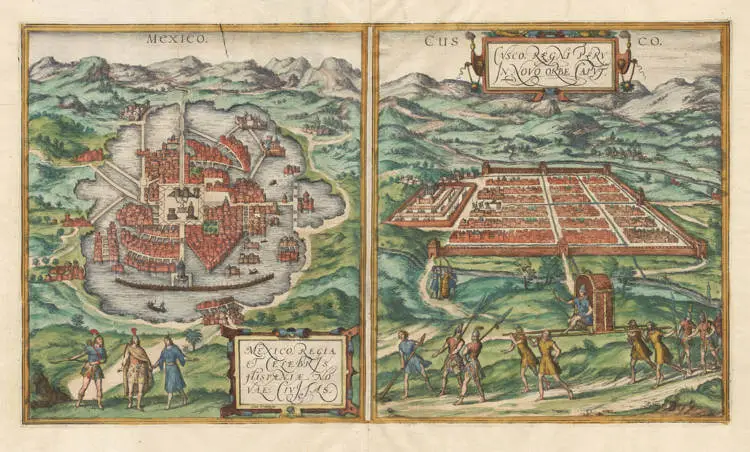 MEXICO.
CUS CO.
CVSCO, REGNI PERV
IN NOVO ORBE CAPVT.
MEXICO, REGIA
ET CELEBRIS
HISPANIÆ NO
VAE CIVITAS